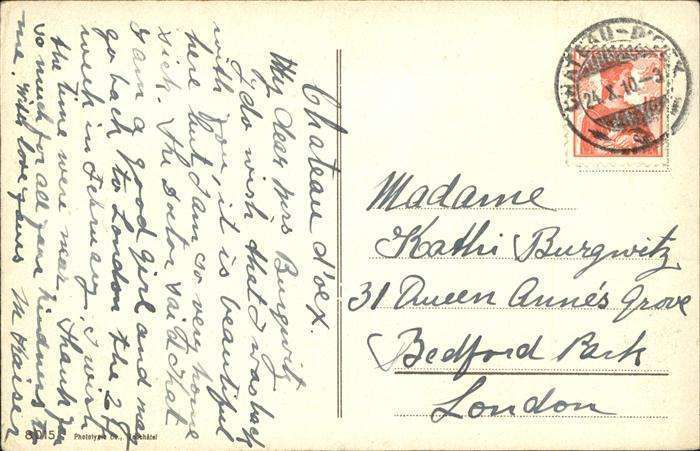 Chateau d'oex.
My dear Mrs Burgwitz
I do wish that I was back
with you, it is beautiful
here but I am so very home
sick. The dutor said that
I am a good girl and may
go back to London the 2
week in February, I wish
the time were near. Thank you
so much for all your kindness to
me. With love yours M Kaiser
CHATEAU-D'OEX
24.X.10.-3
Madame
Kathi Burgwitz
31 Queen Anné's Grove
Bedford Park
London
8015 Phototypie Co., Neuchâtel